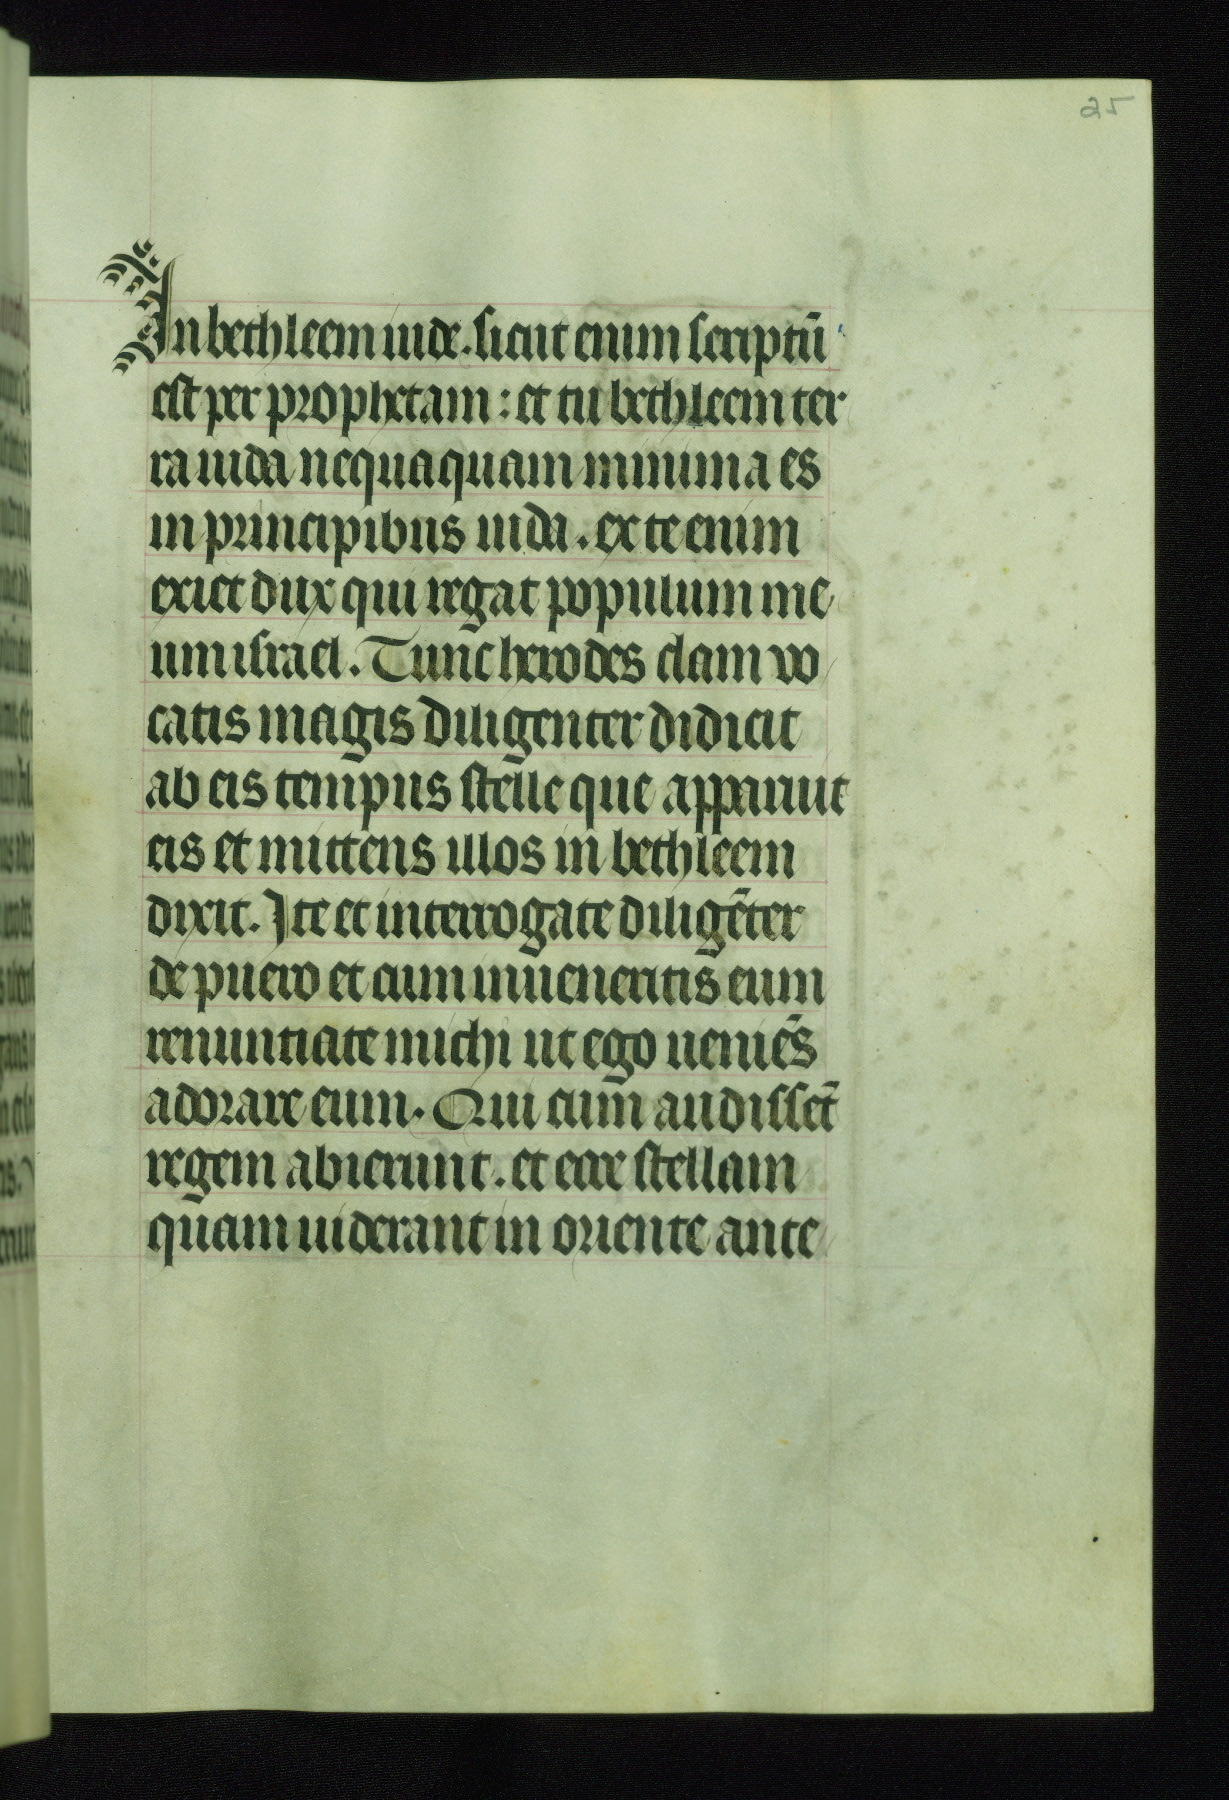 25
In bethleem iude. sicut enim scriptū
est per prophetam: et tu bethleem ter
ra iuda nequaquam minima es
in principibus iuda. ex te enim
exiet dux qui regat populum me
um israel. Tunc herodes clam vo
catis magis diligenter didicit
ab eis tempus stelle que apparuit
eis et mittens illos in bethleem
dixit. Ite et interrogate diligēter
de puero et cum inueneritis eum
renuntiate michi ut ego ueniēs
adorare eum. Qui cum audissēt
regem abierunt. et ecce stellam
quam uiderant in oriente ante